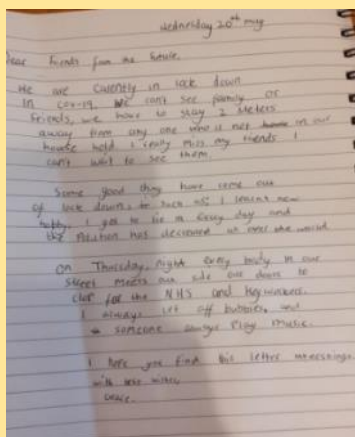 Wednesday 20th may
Dear friends from the future.
We are curently in lock down
In cov-19. We can't see family or
friends, we have to stay 2 meters
away from any one who is not in our
house hold I really miss my friends I
can't wait to see them.
Some good things have come out
of lock down,
hobby, I get to lie a every day and
the has decreased all over the world
On Thursday, night every body in our
street meets out side our doors to
clap for the NHS and keyworkers.
I always let off bubbles, and
someone always play music.
I hope you find this letter
with best wishes,